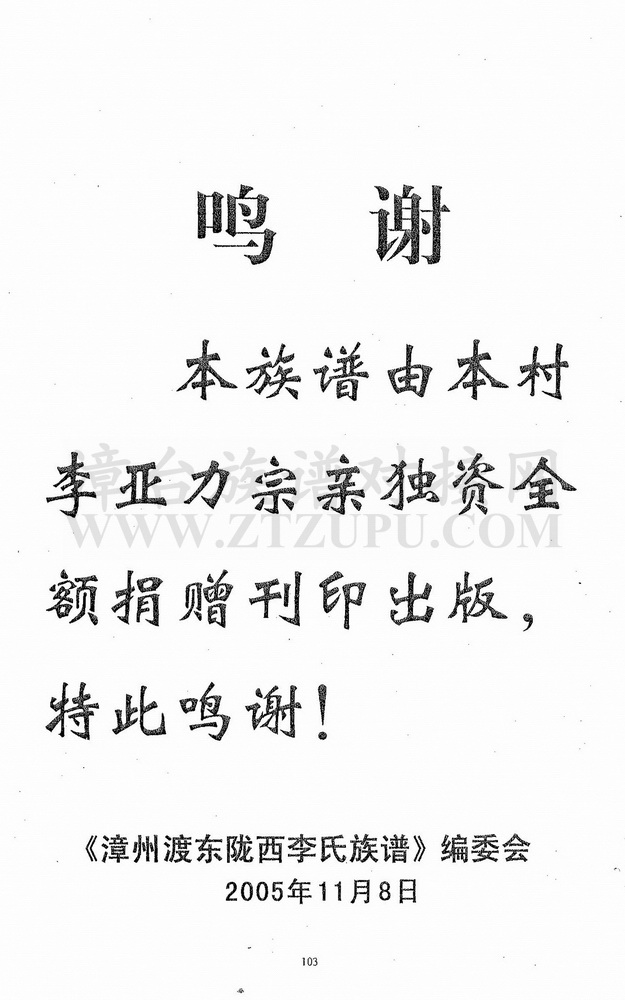 鸣 谢
本族谱由本村
李亚力宗亲独资全
漳台族谱对接网
WWW.ZTZUPU.COM
额捐赠刊印出版，
特此鸣谢！
《漳州渡东陇西李氏族谱》编委会
2005年11月8日
103